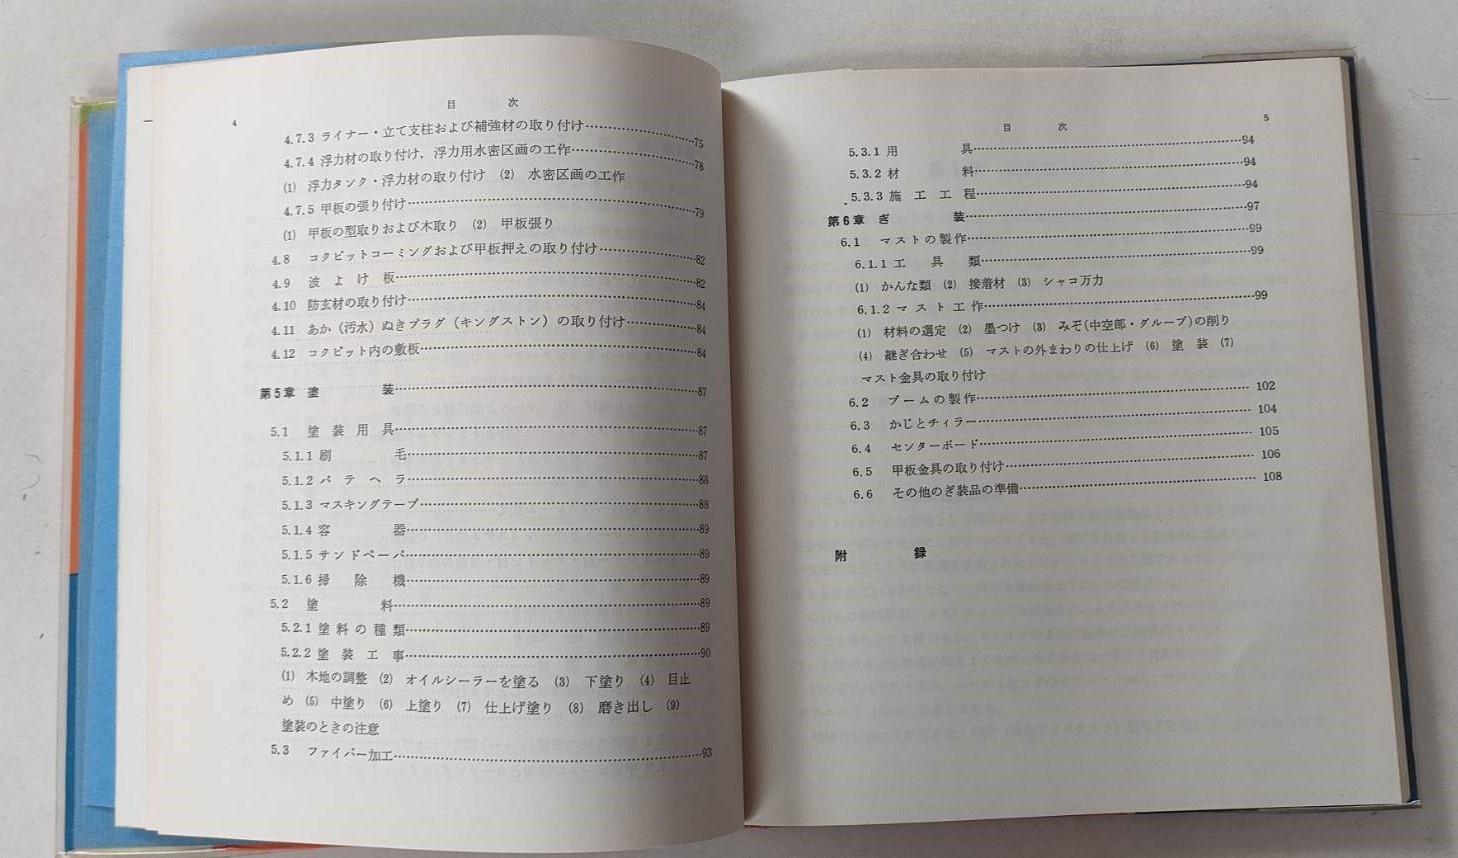 4
目 次
4.7.3 ライナー・立て支柱および補強材の取り付け…75
4.7.4 浮力材の取り付け，浮力用水密区画の工作…78
(1) 浮力タンク・浮力材の取り付け (2) 水密区画の工作
4.7.5 甲板の張り付け…79
(1) 甲板の型取りおよび木取り (2) 甲板張り
4.8 コクピットコーミングおよび甲板押えの取り付け…82
4.9 波よけ板…82
4.10 防玄材の取り付け…84
4.11 あか（汚水）ぬきプラグ（キングストン）の取り付け…84
4.12 コクピット内の敷板…84
第5章 塗 装…87
5.1 塗装用具…87
5.1.1 刷 毛…87
5.1.2 パテヘラ…88
5.1.3 マスキングテープ…88
5.1.4 容 器…89
5.1.5 サンドペーパ…89
5.1.6 掃除機…89
5.2 塗 料…89
5.2.1 塗料の種類…89
5.2.2 塗装工事…90
(1) 木地の調整 (2) オイルシーラーを塗る (3) 下塗り (4) 目止
め (5) 中塗り (6) 上塗り (7) 仕上げ塗り (8) 磨き出し (9)
塗装のときの注意
5.3 ファイバー加工…93
目 次
5
5.3.1 用 具…94
5.3.2 材 料…94
5.3.3 施工工程…94
第6章 ぎ 装…97
6.1 マストの製作…99
6.1.1 工具類…99
(1) かんな類 (2) 接着材 (3) シャコ万力
6.1.2 マスト工作…99
(1) 材料の選定 (2) 墨つけ (3) みぞ(中空部・グルーブ)の削り
(4) 継ぎ合わせ (5) マストの外まわりの仕上げ (6) 塗装 (7)
マスト金具の取り付け
6.2 ブームの製作…102
6.3 かじとチィラー…104
6.4 センターボード…105
6.5 甲板金具の取り付け…106
6.6 その他のぎ装品の準備…108
附 録